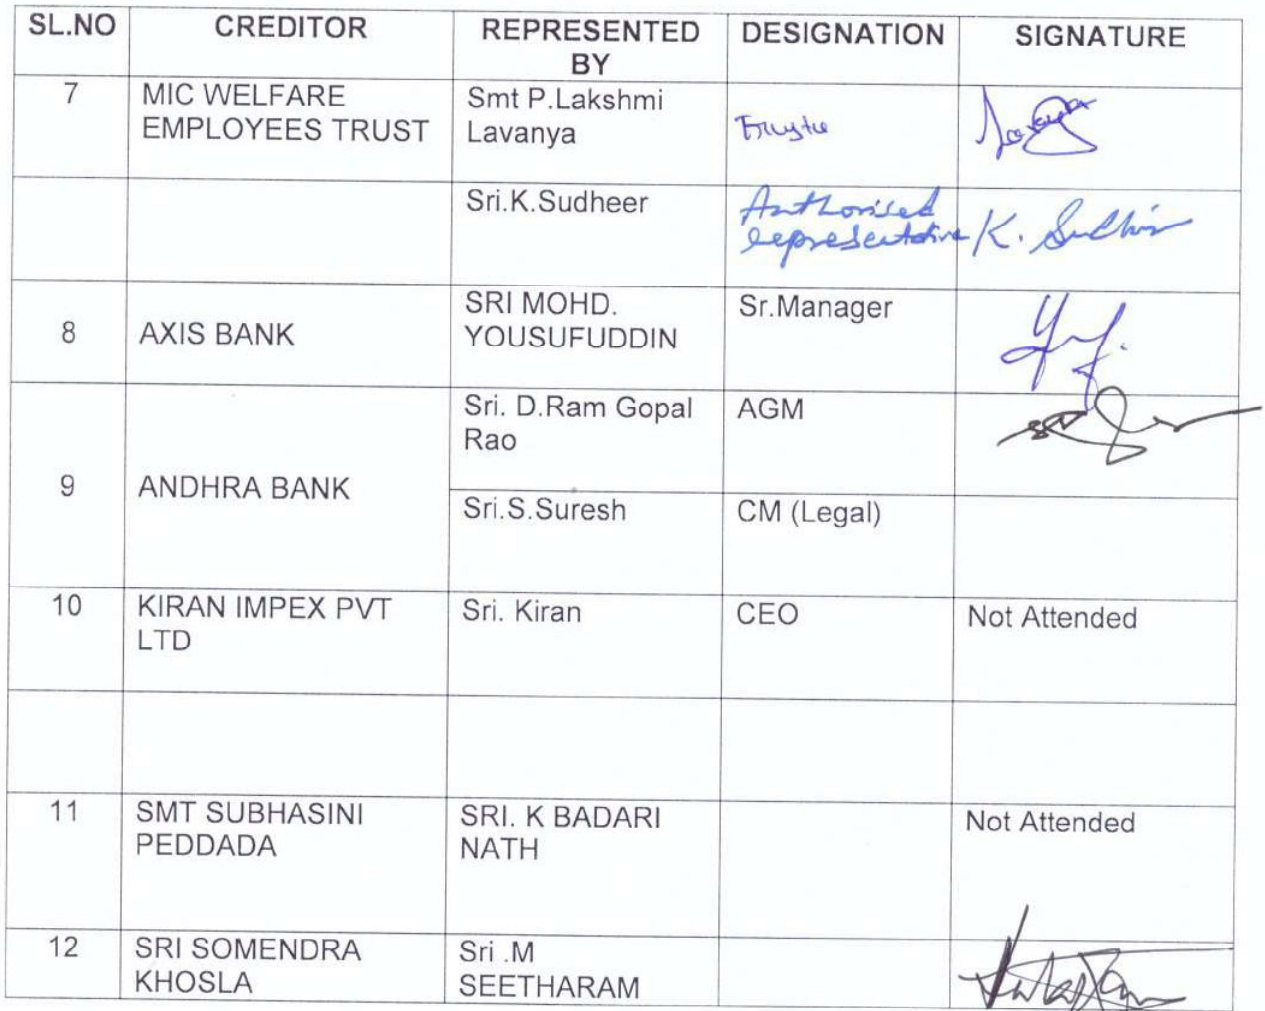 SL.NO CREDITOR REPRESENTED BY DESIGNATION SIGNATURE
7 MIC WELFARE EMPLOYEES TRUST Smt P.Lakshmi Lavanya Trustee
Sri.K.Sudheer Authorised representative K. Sudhir
8 AXIS BANK SRI MOHD. YOUSUFUDDIN Sr.Manager
9 ANDHRA BANK Sri. D.Ram Gopal Rao AGM
Sri.S.Suresh CM (Legal)
10 KIRAN IMPEX PVT LTD Sri. Kiran CEO Not Attended
11 SMT SUBHASINI PEDDADA SRI. K BADARI NATH Not Attended
12 SRI SOMENDRA KHOSLA Sri .M SEETHARAM